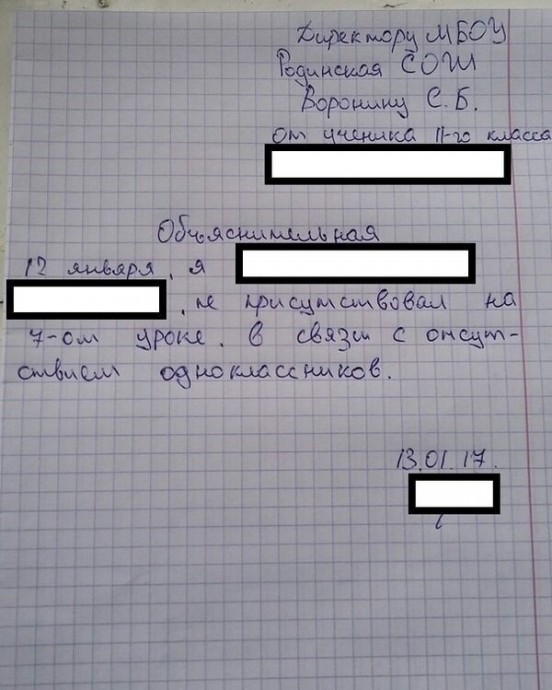 Директору МБОУ
Родинская СОШ
Воронину С.Б.
от ученика 11-го класса
Объяснительная
12 января, я
, не присутствовал на
7-ом уроке, в связи с отсут-
ствием одноклассников.
13.01.17.